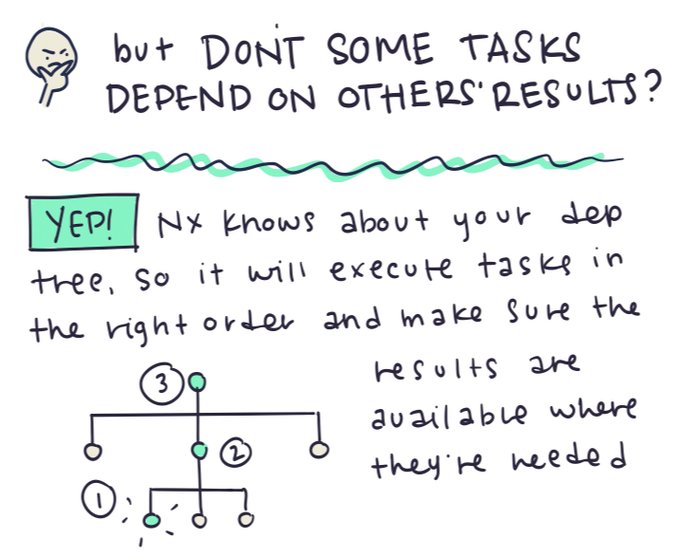 but DON'T SOME TASKS
DEPEND ON OTHERS' RESULTS?
YEP! Nx knows about your dep
tree, so it will execute tasks in
the right order and make sure the
results are
available where
they're needed
3
2
1